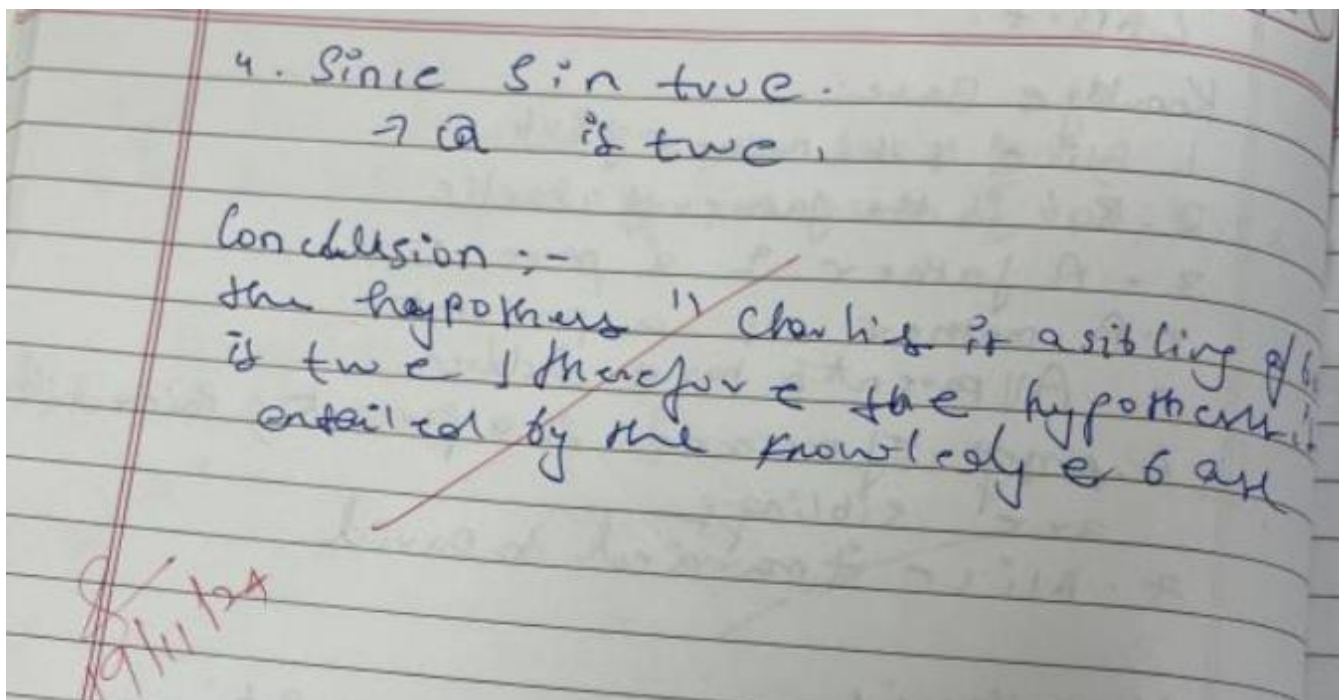 4. Since S in true.
→ Q is true.
Conclusion :-
the hypothess " Charlie is a sibling of
is true, therefore the hypothesis is
entailed by the knowledge base
19/11/24